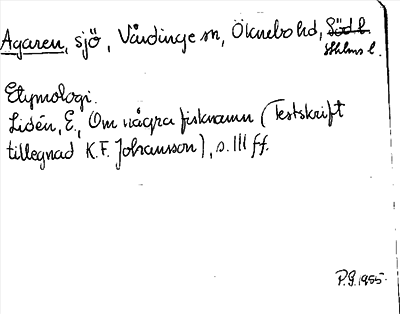 Agaren, sjö, Vårdinge sn, Öknebo hd, Söd l.
Sthlms l.
Etymologi.
Lidén, E., Om några fisknamn (Festskrift
tillegnad K.F. Johansson), s. 111 ff.
P.G. 1955.